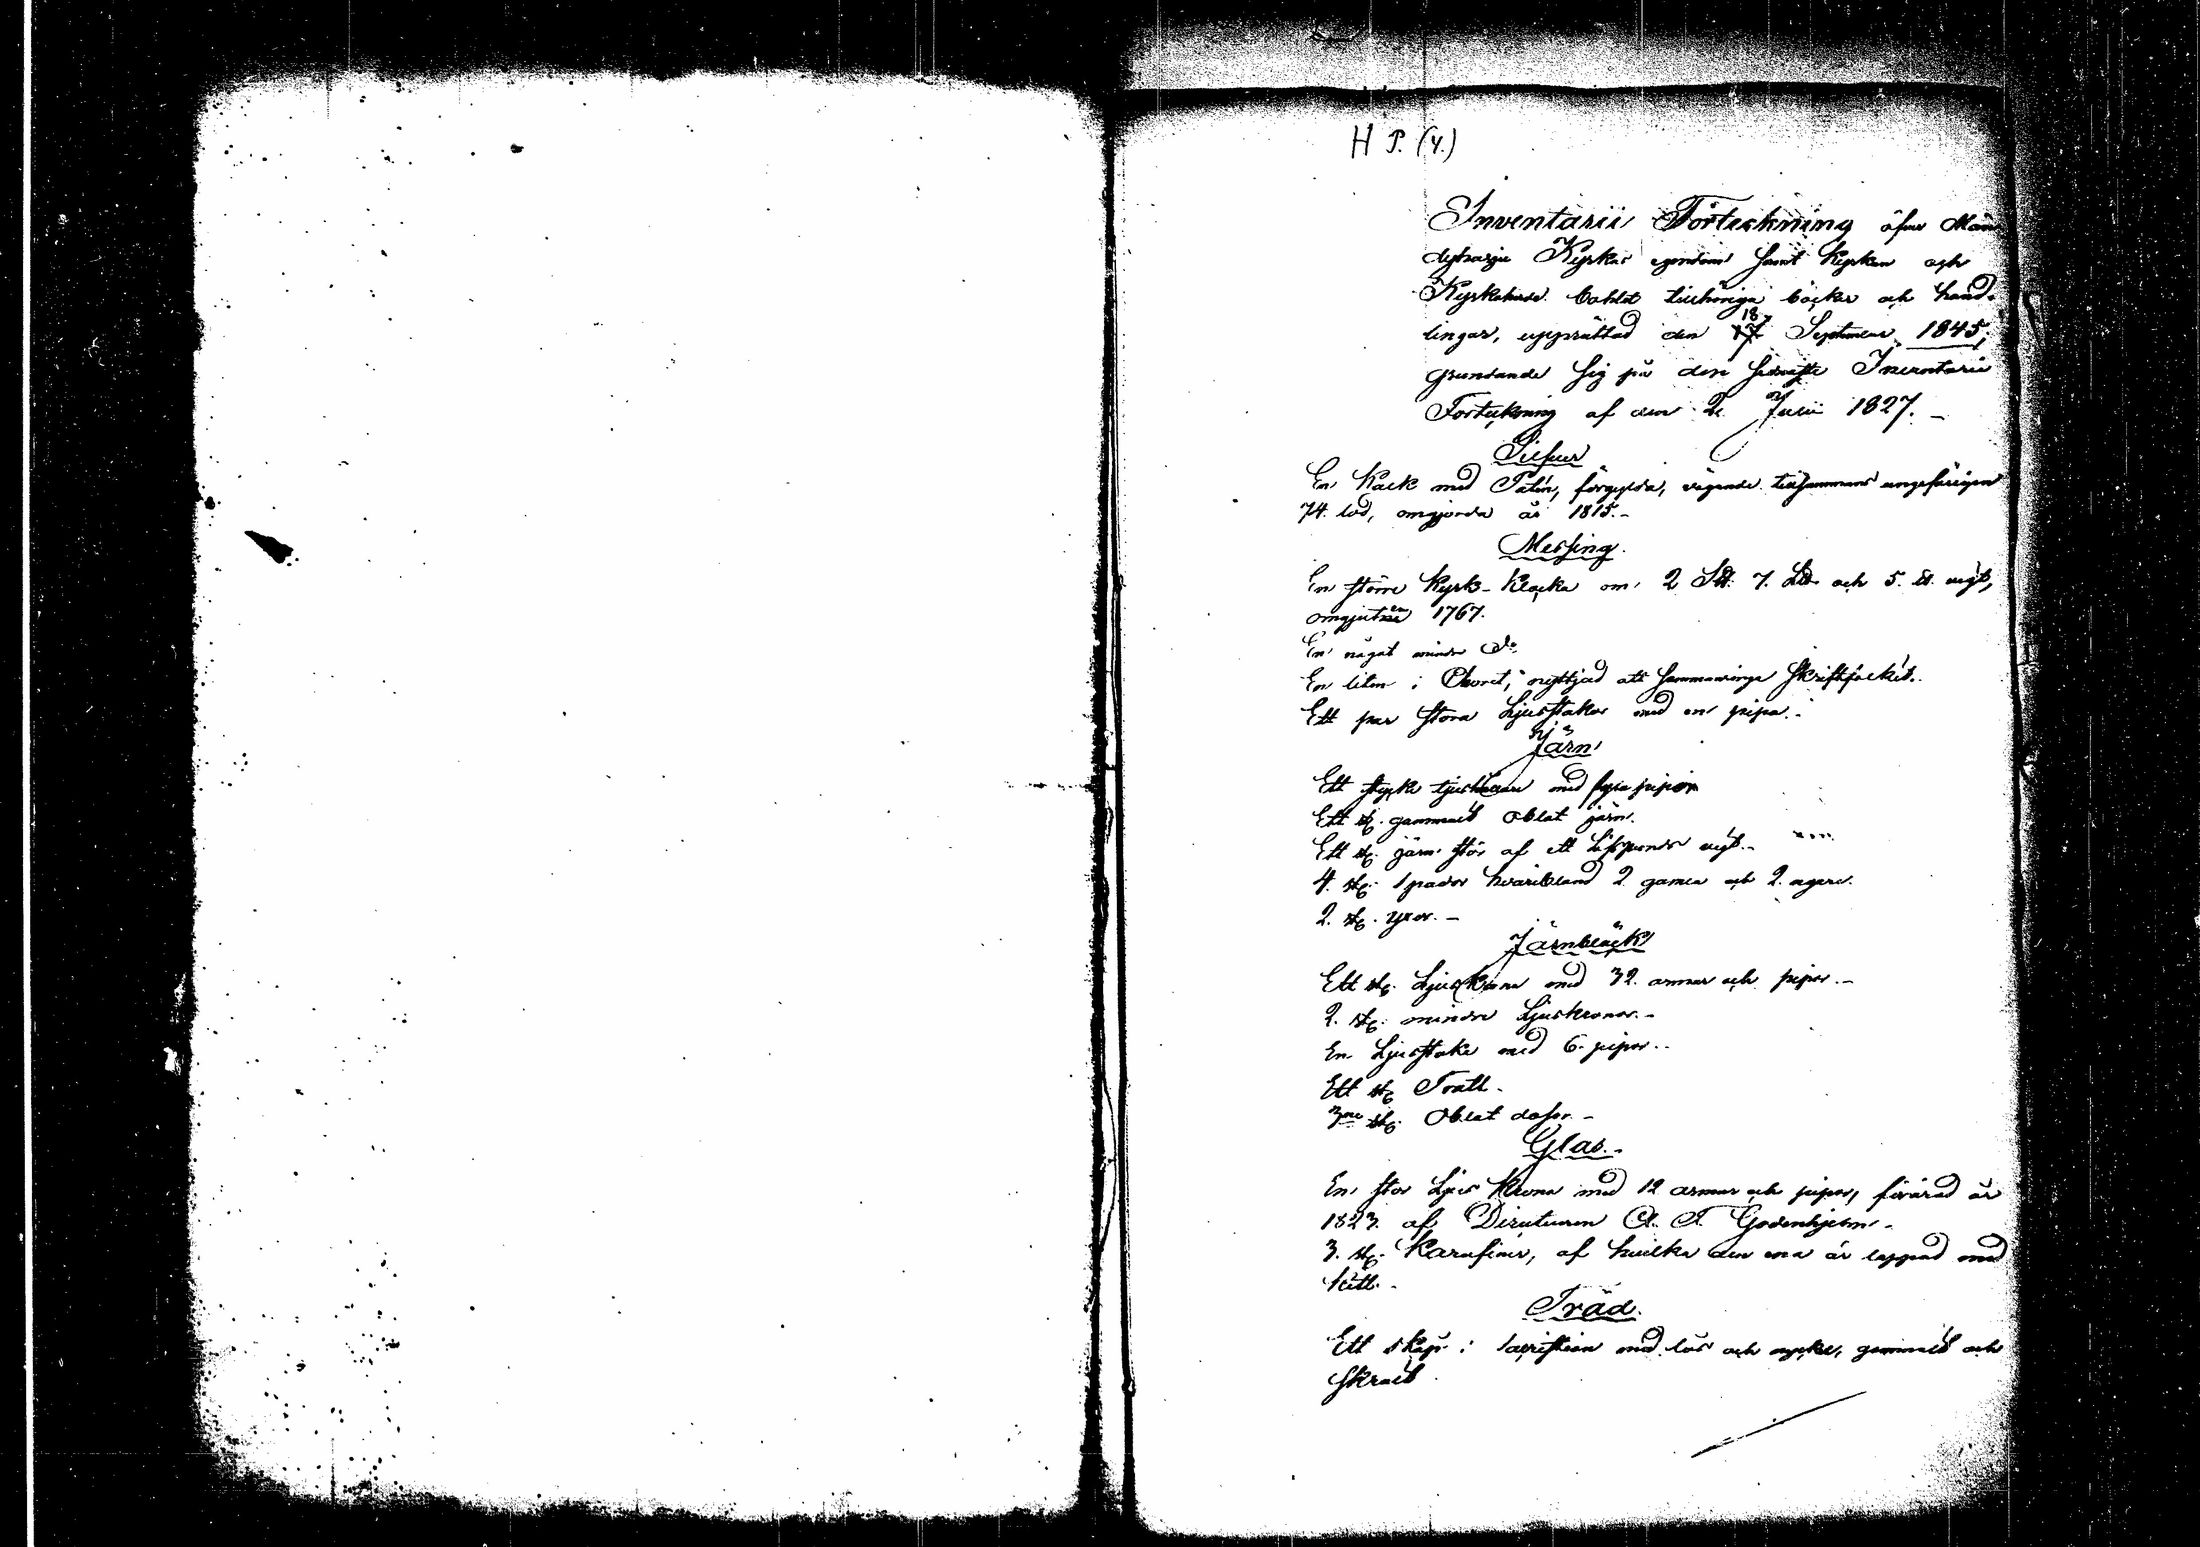 H P. (4.)
Inventarii Förteckning öfver Män
dyharju Kyrkas egendom samt Kyrkan och
Kyrkoherde bohlet tillhöriga böcker och hand-
lingar, upprättad den 18 September 1845,
grundande sig på den sednaste Inventarii
Förteckning af den 2 Julii 1827.
Silfver
En Kalk med Patén, förgylda, vägande tillsammans ungefärligen
74. lod, omgjorda år 1815.
Messing.
En större Kyrk-Klocka om 2 S℔. 7. L℔. och 5. ℔. vigt,
omgjuten 1767.
En något mindre do
En liten i Choret, nyttjad att sammanringa Skriftfolket.
Ett par stora Ljusstakar med en pipa.
Järn
Ett stycke ljushållare med fyra pipor
Ett st. gammalt Oblat järn.
Ett st. järn stör af ett Lispunds vigt.
4. st. spador hvaribland 2 gamla och 2. nyare.
2. st. yxor.
Järnbläck
Ett st. Ljuskrona med 32. armar och pipor.
2. st. mindre Ljuskronor.
En Ljusstake med 6. pipor.
Ett st. Tratt.
3ne st. Oblat dosor.
Glas.
En stor Ljus Krona med 12 armar och pipor, förärad år
1823. af Directeuren A. F. Godenhjelm.
3. st. Karafiner, af hvilka den ena är lappad med
kitt.
Träd.
Ett skåp i sacristian med lås och nyckel, gammalt och
skralt